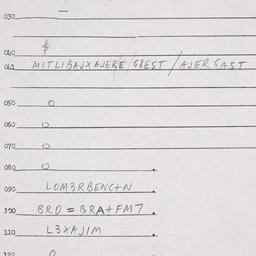 030
040
$
041 MITLIBAJXAJERE/G8EST/AJERGAST
050 O
060 O
070 O
080 O .
090 LOM3RBENC+N .
100 BRD = BRA+FM7 .
110 L3XAJIM .
120 O